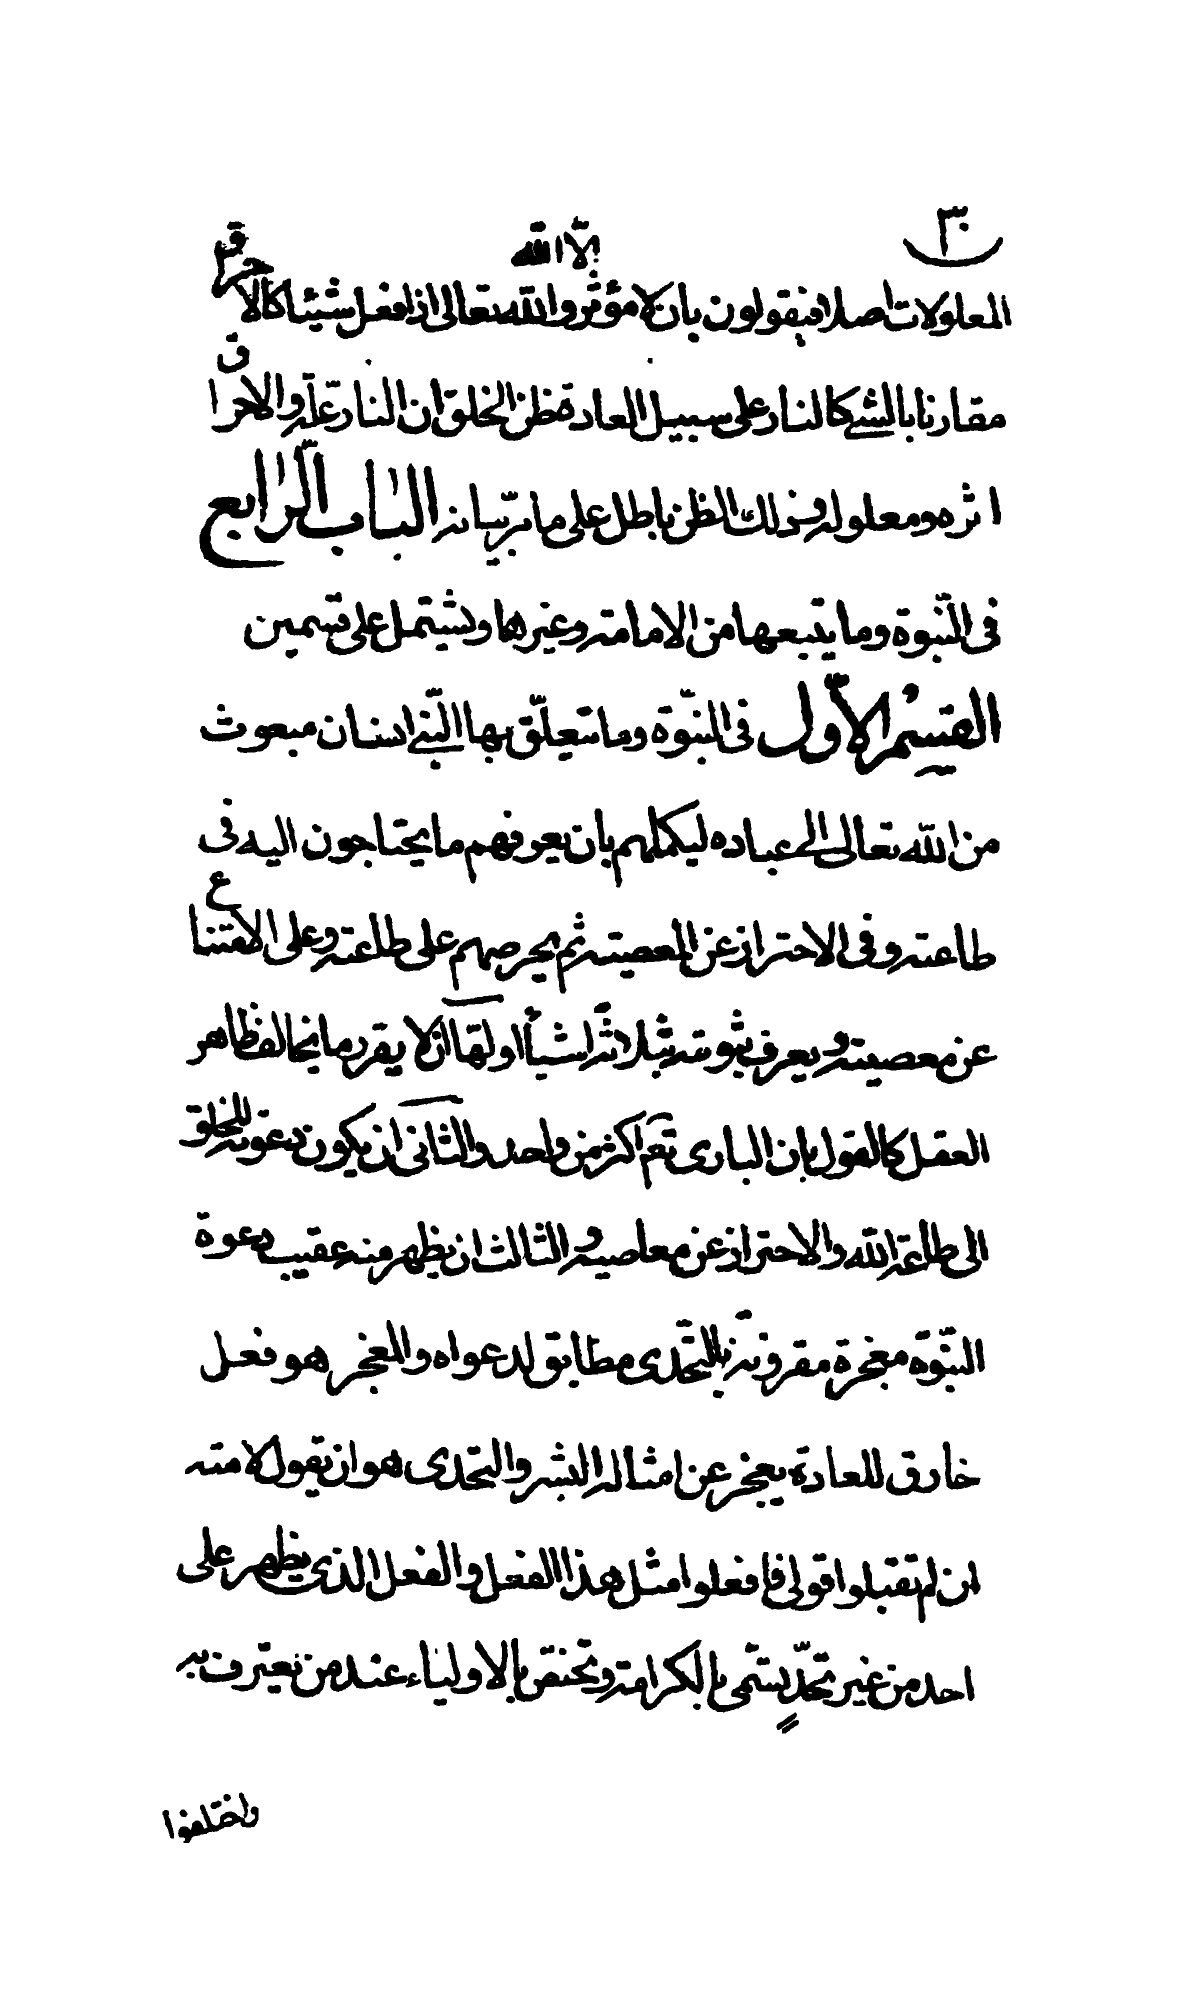 ٣٠
المعلولات اصلا فيقولون بان لا مؤثر الا الله والله تعالى اذا فعل شيئا كالاحرق
مقارنا بالشي كالنار على سبيل العادة فظن الخلق ان النار علة والاحراق
اثره ومعلوله وذلك الظن باطل على ما مر بيانه الباب الرابع
فى النبوة وما يتبعها من الامامة وغيرها ويشتمل على قسمين
القسم الاول فى النبوة وما يتعلق بها النبي انسان مبعوث
من الله تعالى الى عباده ليكملهم بان يعرفهم ما يحتاجون اليه فى
طاعته وفى الاحتراز عن المعصية ثم يحرصهم على طاعته وعلى الامتناع
عن معصيته ويعرف نبوته بثلاثة اشياء اولها ان لا يقرر ما يخالف ظاهر
العقل كالقول بان البارى تعم اكثر من واحد والثانى ان يكون دعوته للخلق
الى طاعة الله والاحتراز عن معاصيه والثالث ان يظهر منه عقيب دعوة
النبوة معجزة مقرونة بالتحدى مطابق لدعواه والمعجز هو فعل
خارق للعادة يعجز عن امثاله البشر والتحدى هو ان يقول لامته
ان لم تقبلوا قولى فافعلوا مثل هذا الفعل والفعل الذى يظهر على
احد من غير تحدٍ يسمى بالكرامة ويختص بالاولياء عند من يعترف به
واختلفوا